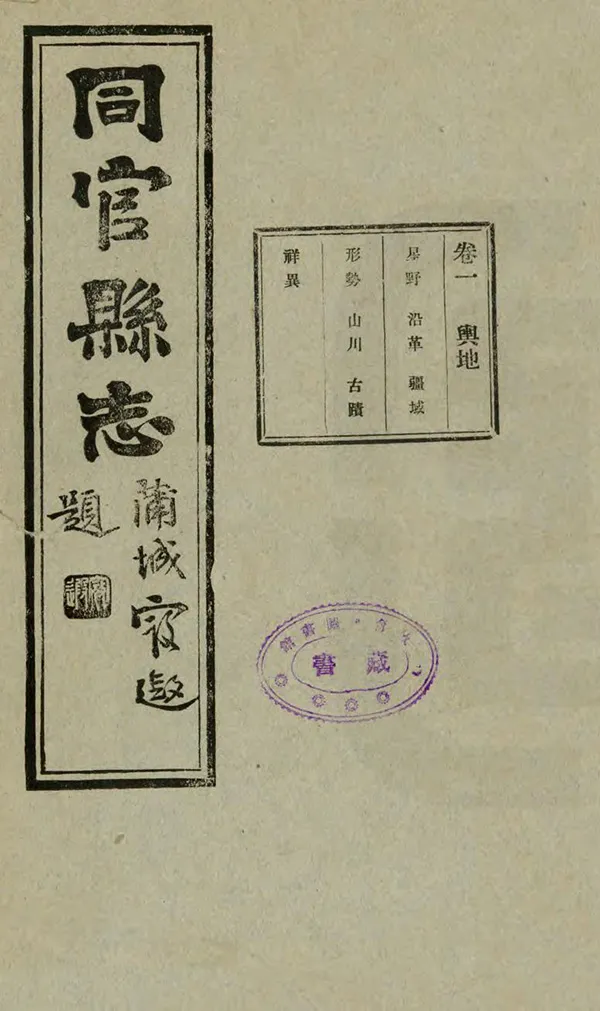 同官縣志
蒲城寇遐
題
卷一 輿地
星野 沿革 疆域
形勢 山川 古蹟
祥異
藏書